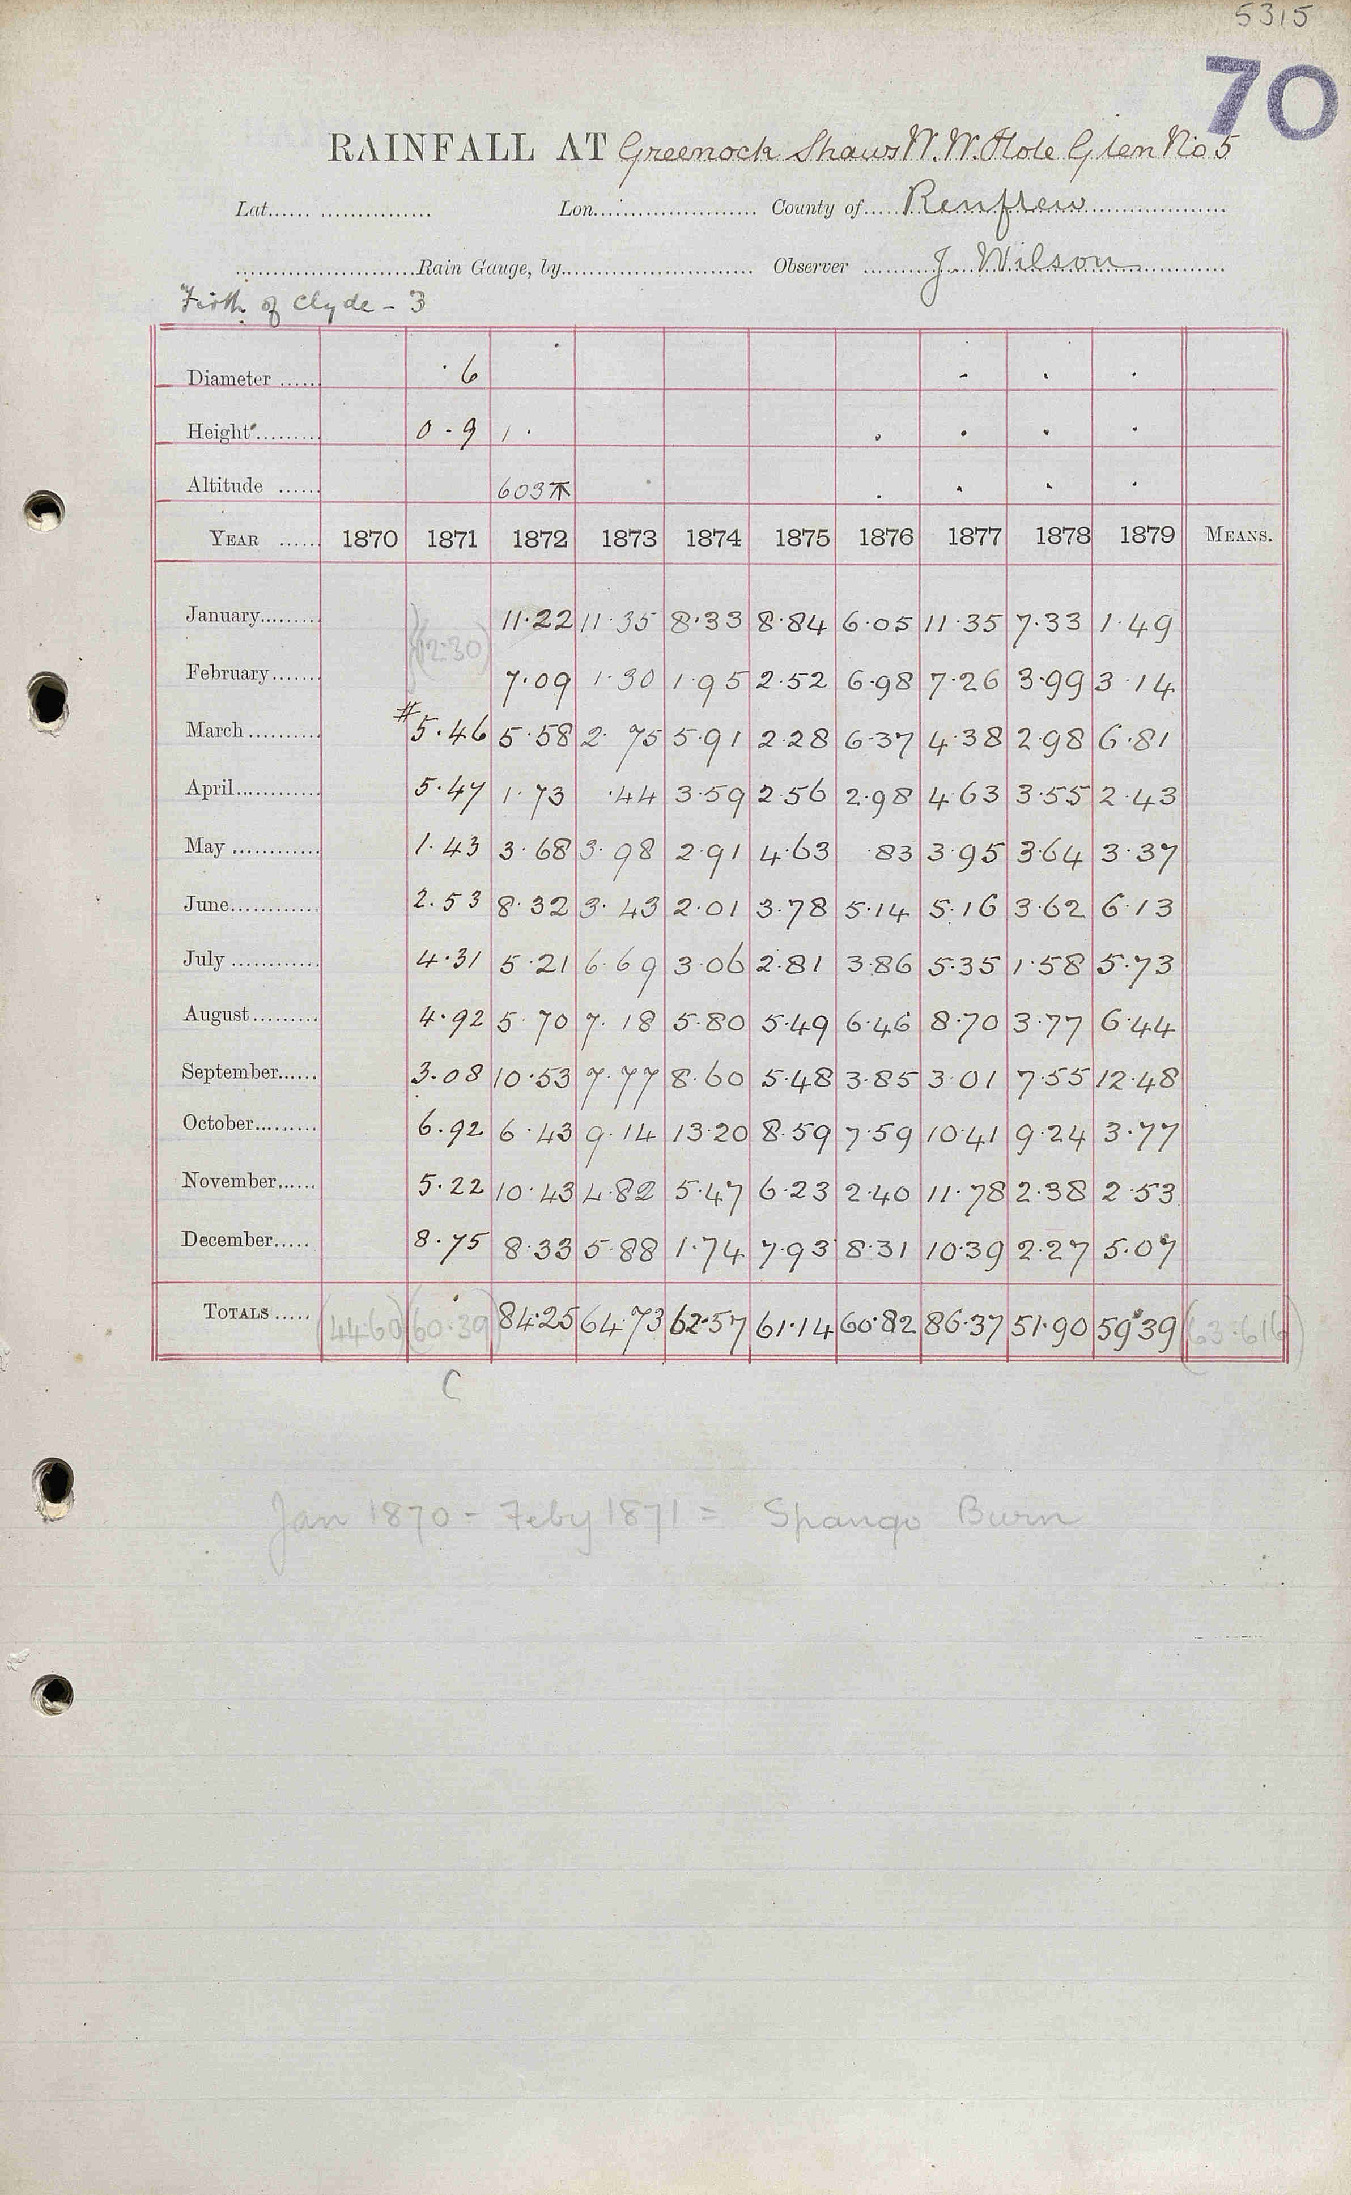 5315
70
RAINFALL AT Greenock Shaws W.W. Hole Glen No 5
Lat. Lon. County of Renfrew
Rain Gauge, by Observer J. Wilson
Firth of Clyde - 3
Diameter 6
Height 0.9 1.
Altitude 603
YEAR 1870 1871 1872 1873 1874 1875 1876 1877 1878 1879 MEANS.
January 11.22 11.35 8.33 8.84 6.05 11.35 7.33 1.49
(12.30)
February 7.09 1.30 1.95 2.52 6.98 7.26 3.99 3.14
March #5.46 5.58 2.75 5.91 2.28 6.37 4.38 2.98 6.81
April 5.47 1.73 .44 3.59 2.56 2.98 4.63 3.55 2.43
May 1.43 3.68 3.98 2.91 4.63 .83 3.95 3.64 3.37
June 2.53 8.32 3.43 2.01 3.78 5.14 5.16 3.62 6.13
July 4.31 5.21 6.69 3.06 2.81 3.86 5.35 1.58 5.73
August 4.92 5.70 7.18 5.80 5.49 6.46 8.70 3.77 6.44
September 3.08 10.53 7.77 8.60 5.48 3.85 3.01 7.55 12.48
October 6.92 6.43 9.14 13.20 8.59 7.59 10.41 9.24 3.77
November 5.22 10.43 4.82 5.47 6.23 2.40 11.78 2.38 2.53
December 8.75 8.33 5.88 1.74 7.93 8.31 10.39 2.27 5.07
TOTALS (44.60) (60.39) 84.25 64.73 62.57 61.14 60.82 86.37 51.90 59.39 (63.616)
C
Jan 1870 - Feby 1871 = Spango Burn